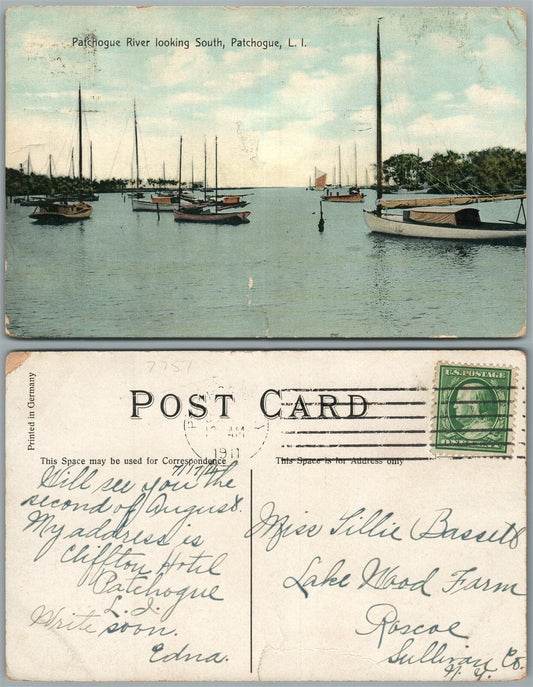 Patchogue River looking South, Patchogue, L. I.
7751
Printed in Germany
POST CARD
U.S. POSTAGE
AM
1911
This Space may be used for Correspondence
This Space is for Address only
7/17/11
Will see you the
second of August.
My address is
Cliffton Hotel
Patchogue
L. I.
Write soon.
Edna.
Miss Lillie Bassett
Lake Wood Farm
Roscoe
Sullivan Co.
N. Y.